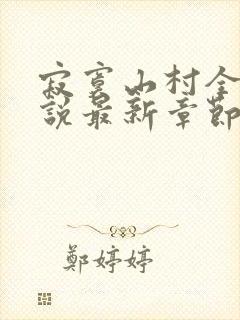 寂寞山村全
說最新章節
鄭婷婷